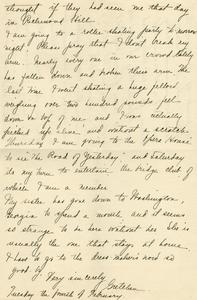 thought if they had seen me that day
in Richmond Hill.
I am going to a roller skating party to-morrow
night. Please pray that I don't break my
arm. Nearly every one in our crowd lately
has fallen down and broken their arm. The
last time I went skating a huge fellow
weighing over two hundred pounds fell
down on top of me and I was actually
picked up alive and without a scratch.
Thursday I am going to the opera house
to see the Road of Yesterday and Saturday
do my turn to entertain the bridge club of
which I am a member
My sister has gone down to Washington
Georgia to spend a month, and it seems
so strange to be here without her. She is
usually the one that stays at home.
I have to go to the dress-maker's now so
good by
Very sincerely
Gretchen
Tuesday the fourth of February